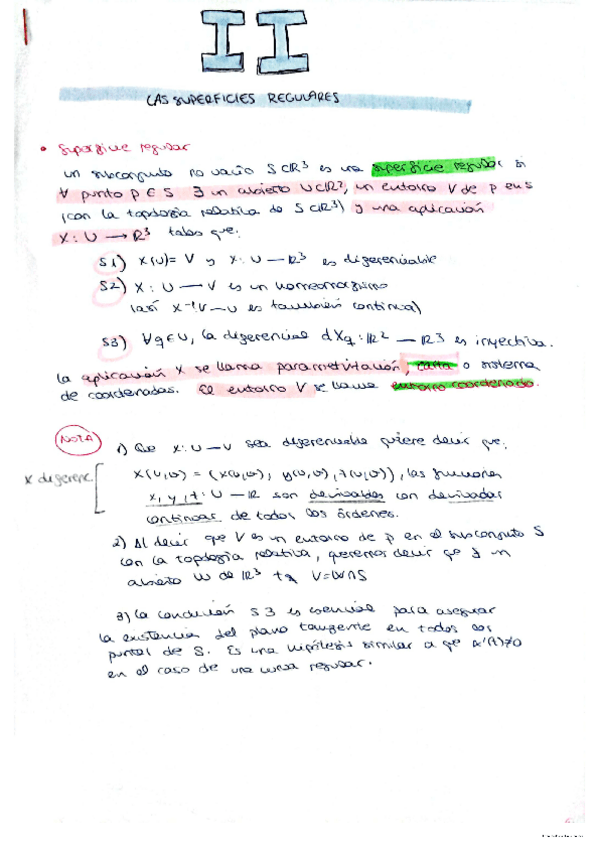 II
LAS SUPERFICIES REGULARES
• Superficie regular
Un subconjunto no vacío S⊂ℝ³ es una superficie regular si
∀ punto p ∈ S ∃ un abierto U⊂ℝ², un entorno V de p en S
(con la topología relativa de S⊂ℝ³) y una aplicación
X: U → ℝ³ tales que:
S1) X(U)= V y X: U — ℝ³ es diferenciable
S2) X: U — V es un homeomorfismo
(así X⁻¹: V — U es también continua)
S3) ∀q∈U, la diferencial dXq: ℝ² — ℝ³ es inyectiva.
La aplicación X se llama parametrización, carta o sistema
de coordenadas. El entorno V se llama entorno coordenado.
NOTA
1) Que X: U — V sea diferenciable quiere decir que:
X diferenc.
X(u,v) = (x(u,v), y(u,v), z(u,v)), las funciones
x, y, z: U — ℝ son derivables con derivadas
continuas de todos los órdenes.
2) Al decir que V es un entorno de p en el subconjunto S
con la topología relativa, queremos decir que ∃ un
abierto W de ℝ³ tq V=W∩S
3) La condición S3 es esencial para asegurar
la existencia del plano tangente en todos los
puntos de S. Es una hipótesis similar a qe α'(t)≠0
en el caso de una curva regular.